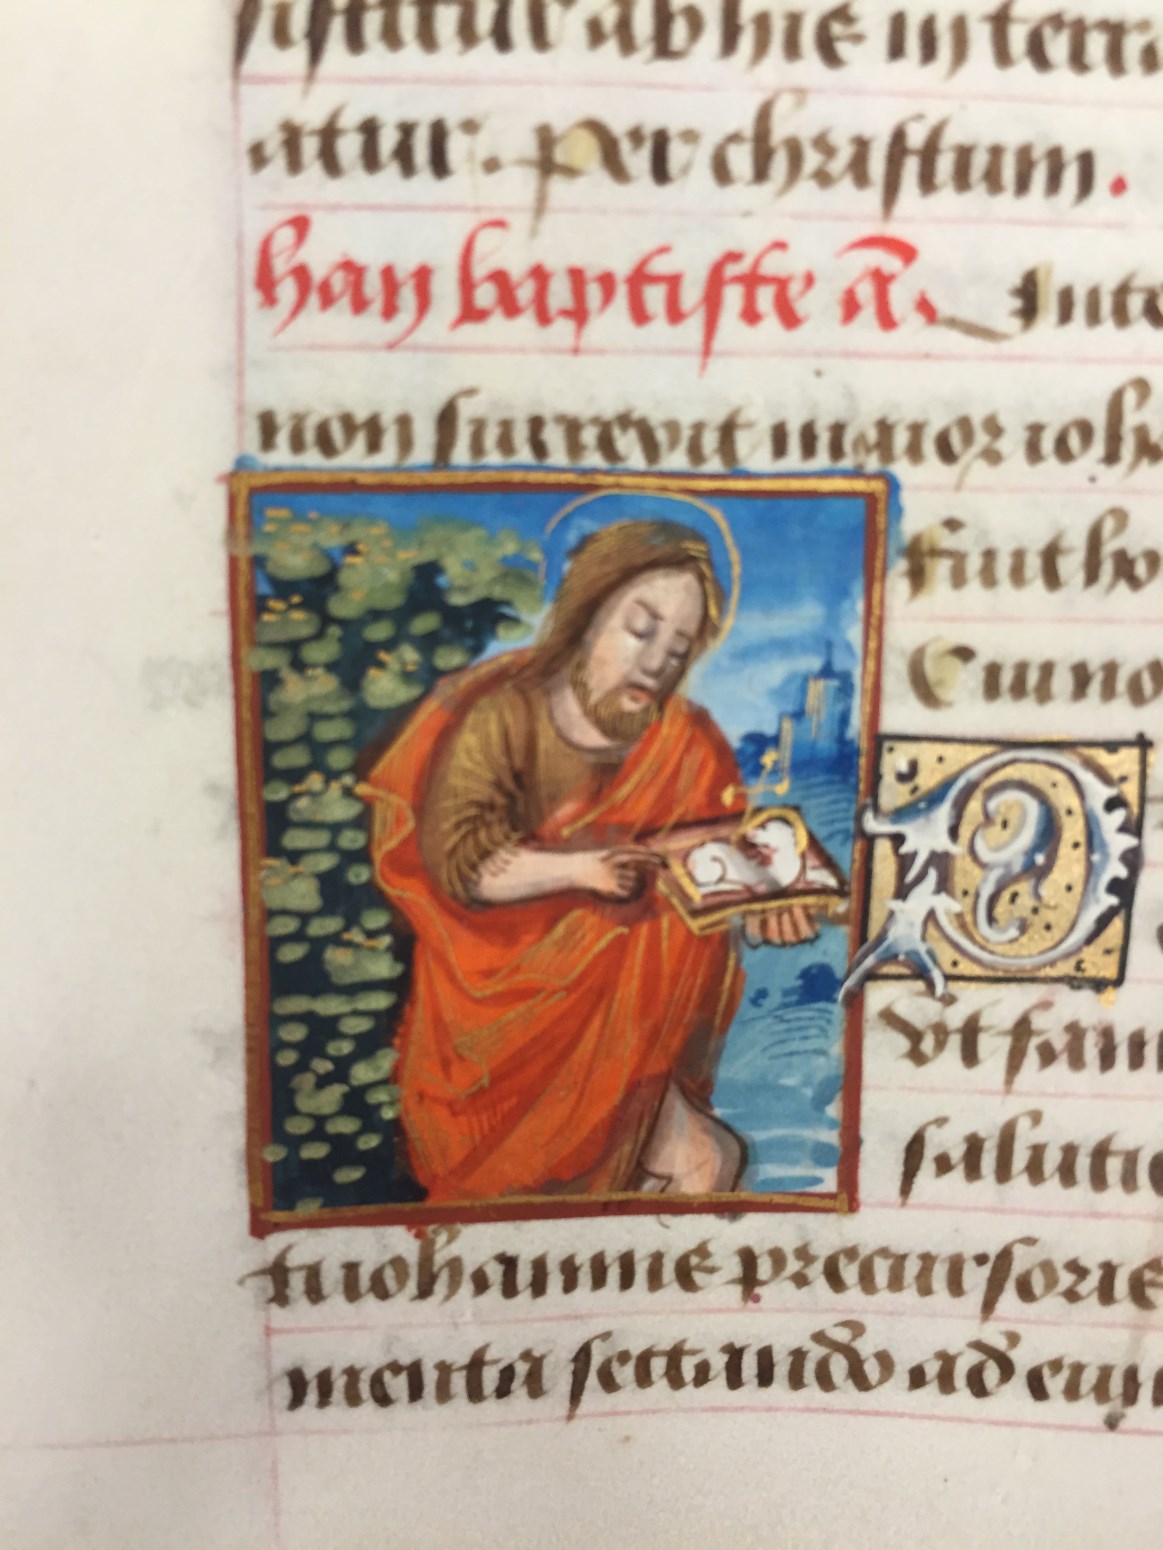 sistitur ab hiis in terra
atur. per christum.
han baptiste a͞. Inte
non surrexit maior ioha
fuit ho
Cui no
P
vt fam
saluti
ti iohannis precursoris
menta sectando ad eum